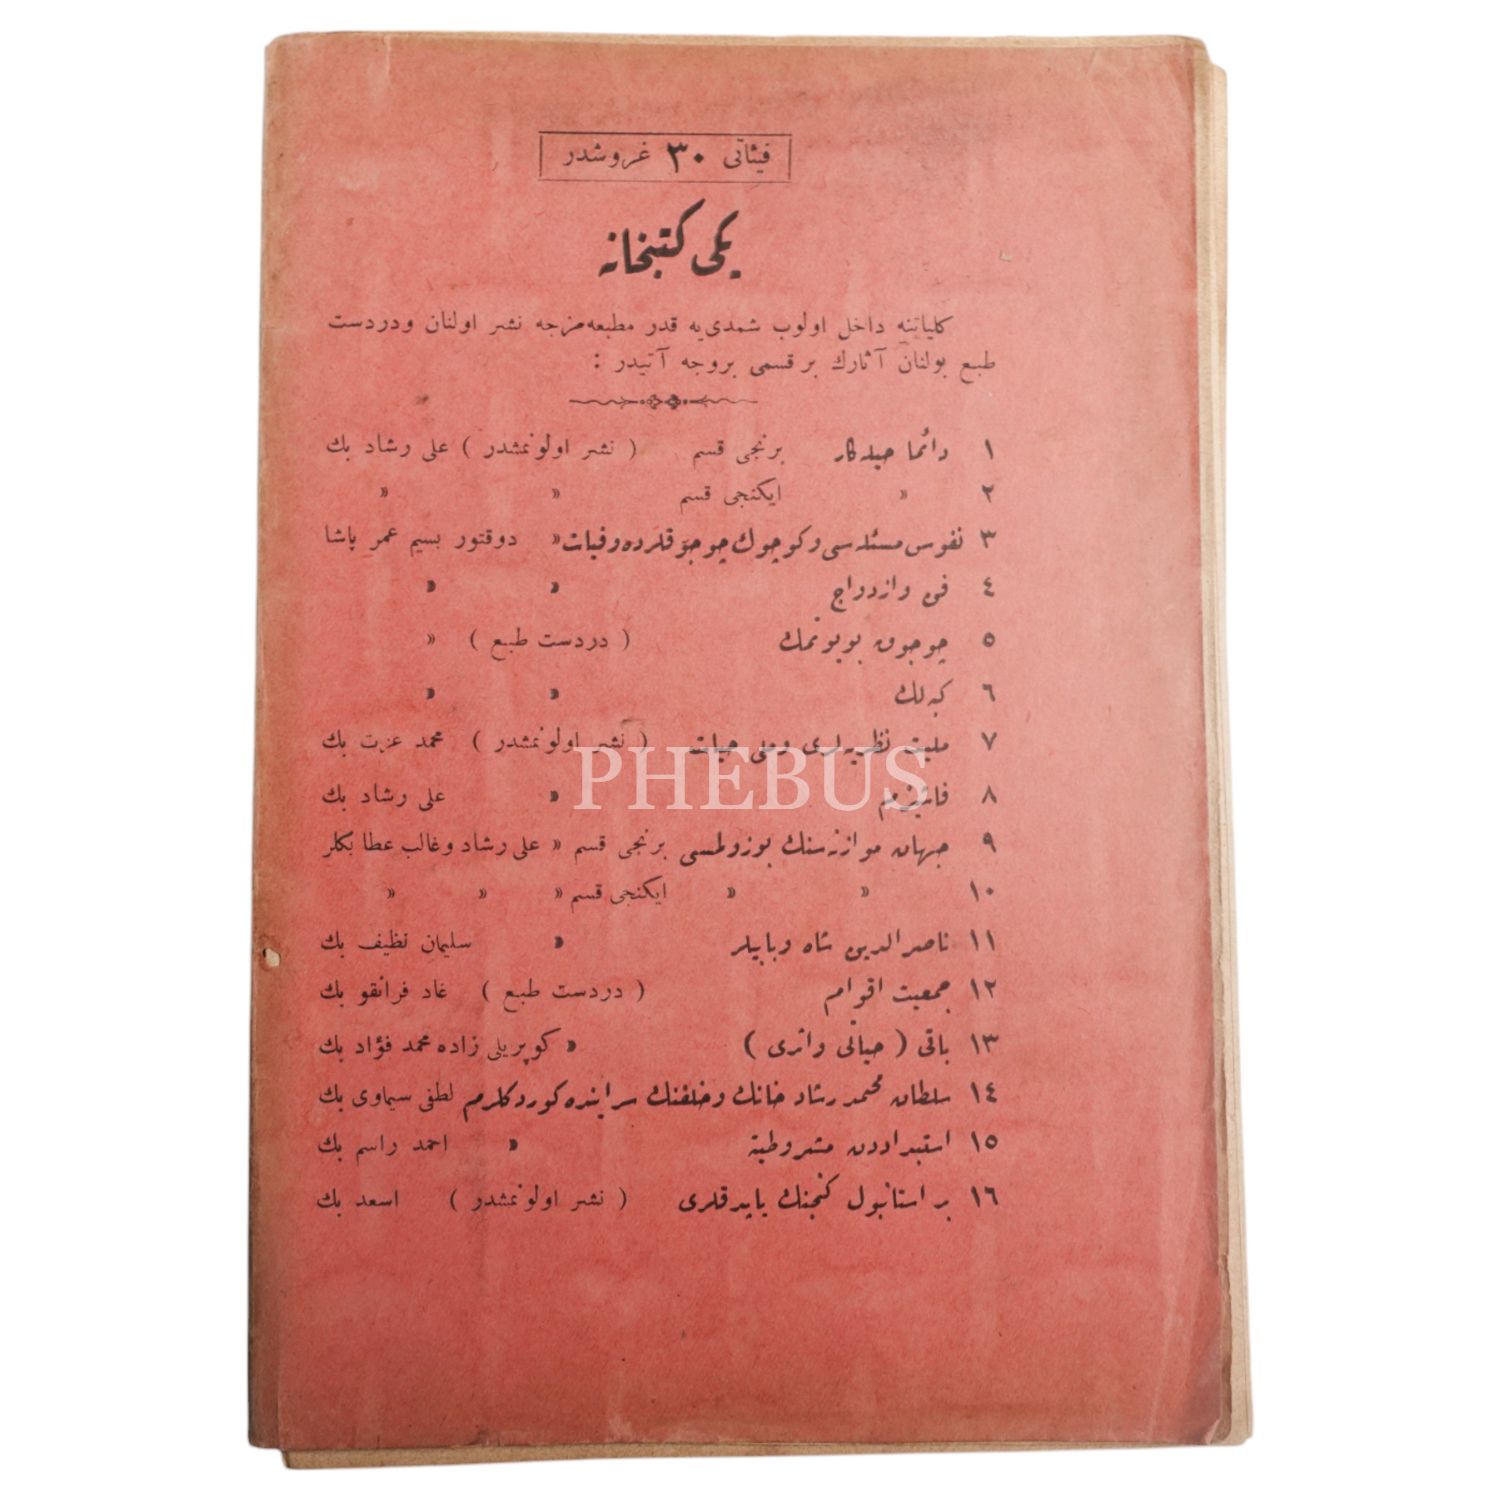 فیئاتی ٣٠ غروشدر
یکی کتبخانه
کلیاتنه داخل اولوب شمدی‌یه قدر مطبعه‌مزجه نشر اولنان ودردست
طبع بولنان آثارك بر قسمی بروجه آتیدر :
١ دائما حیله‌کار برنجی قسم ( نشر اولونمشدر ) علی رشاد بك
٢ » ایکنجی قسم » »
٣ نفوس مسئله‌سی وکوچوك چوجوقلرده وفیات » دوقتور بسیم عمر پاشا
٤ فن وازدواج » »
٥ چوجوق بویوتمك ( دردست طبع ) »
٦ کبه‌لك » »
٧ ملیت نظریه‌لری وملی حیات ( نشر اولونمشدر ) محمد عزت بك
٨ فاشیزم » علی رشاد بك
٩ جهان موازنه‌سنك بوزولمسی برنجی قسم » علی رشاد وغالب عطا بکلر
١٠ » » ایکنجی قسم » » »
١١ ناصرالدین شاه وبابیلر » سلیمان نظیف بك
١٢ جمعیت اقوام ( دردست طبع ) غاد فرانقو بك
١٣ باقی ( حیاتی واثری ) » کوپریلی زاده محمد فؤاد بك
١٤ سلطان محمد رشاد خانك وخلفنك سراینده کوردکلرم لطفی سیماوی بك
١٥ استبداددن مشروطیته » احمد راسم بك
١٦ بر استانبول کنجنك یایدقلری ( نشر اولونمشدر ) اسعد بك
PHEBUS